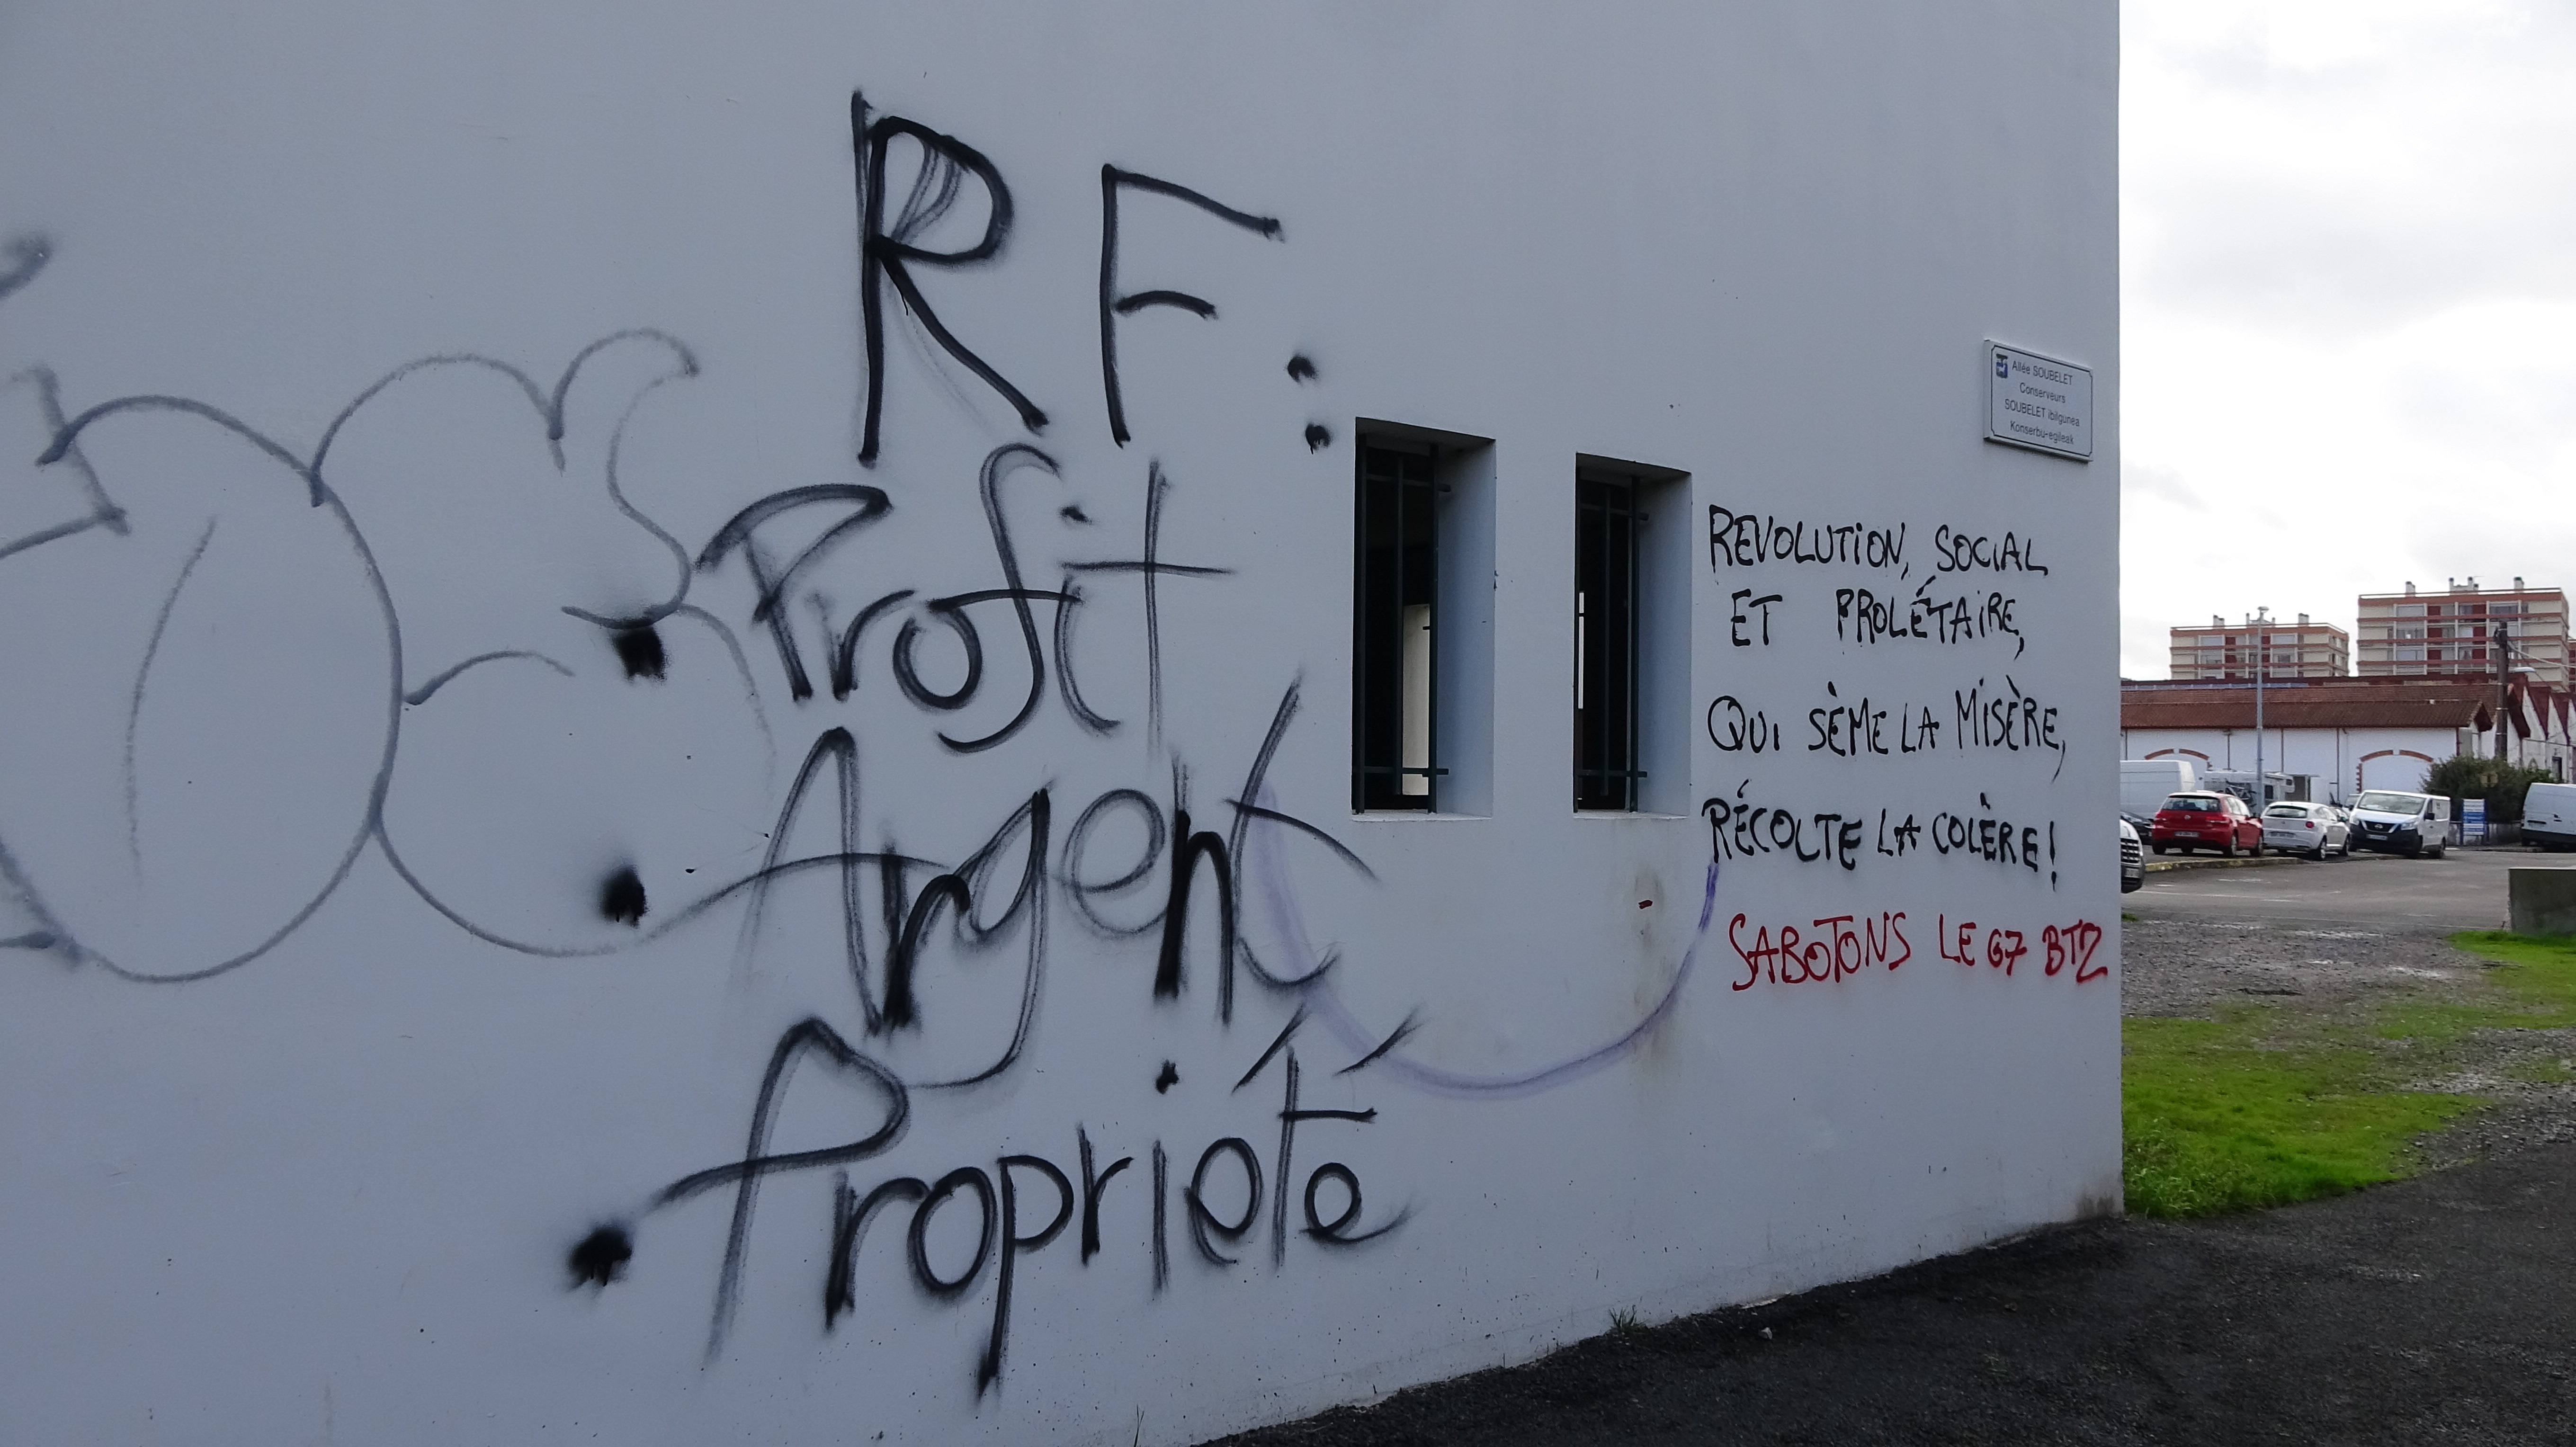 RF:
Profit
Argent
Propriété
Allée SOUBELET
Conserveurs
SOUBELET ibilgunea
Konserbu-egileak
REVOLUTION, SOCIAL
ET PROLÉTAIRE,
QUI SÈME LA MISÈRE,
RÉCOLTE LA COLÈRE!
SABOTONS LE G7 BTZ